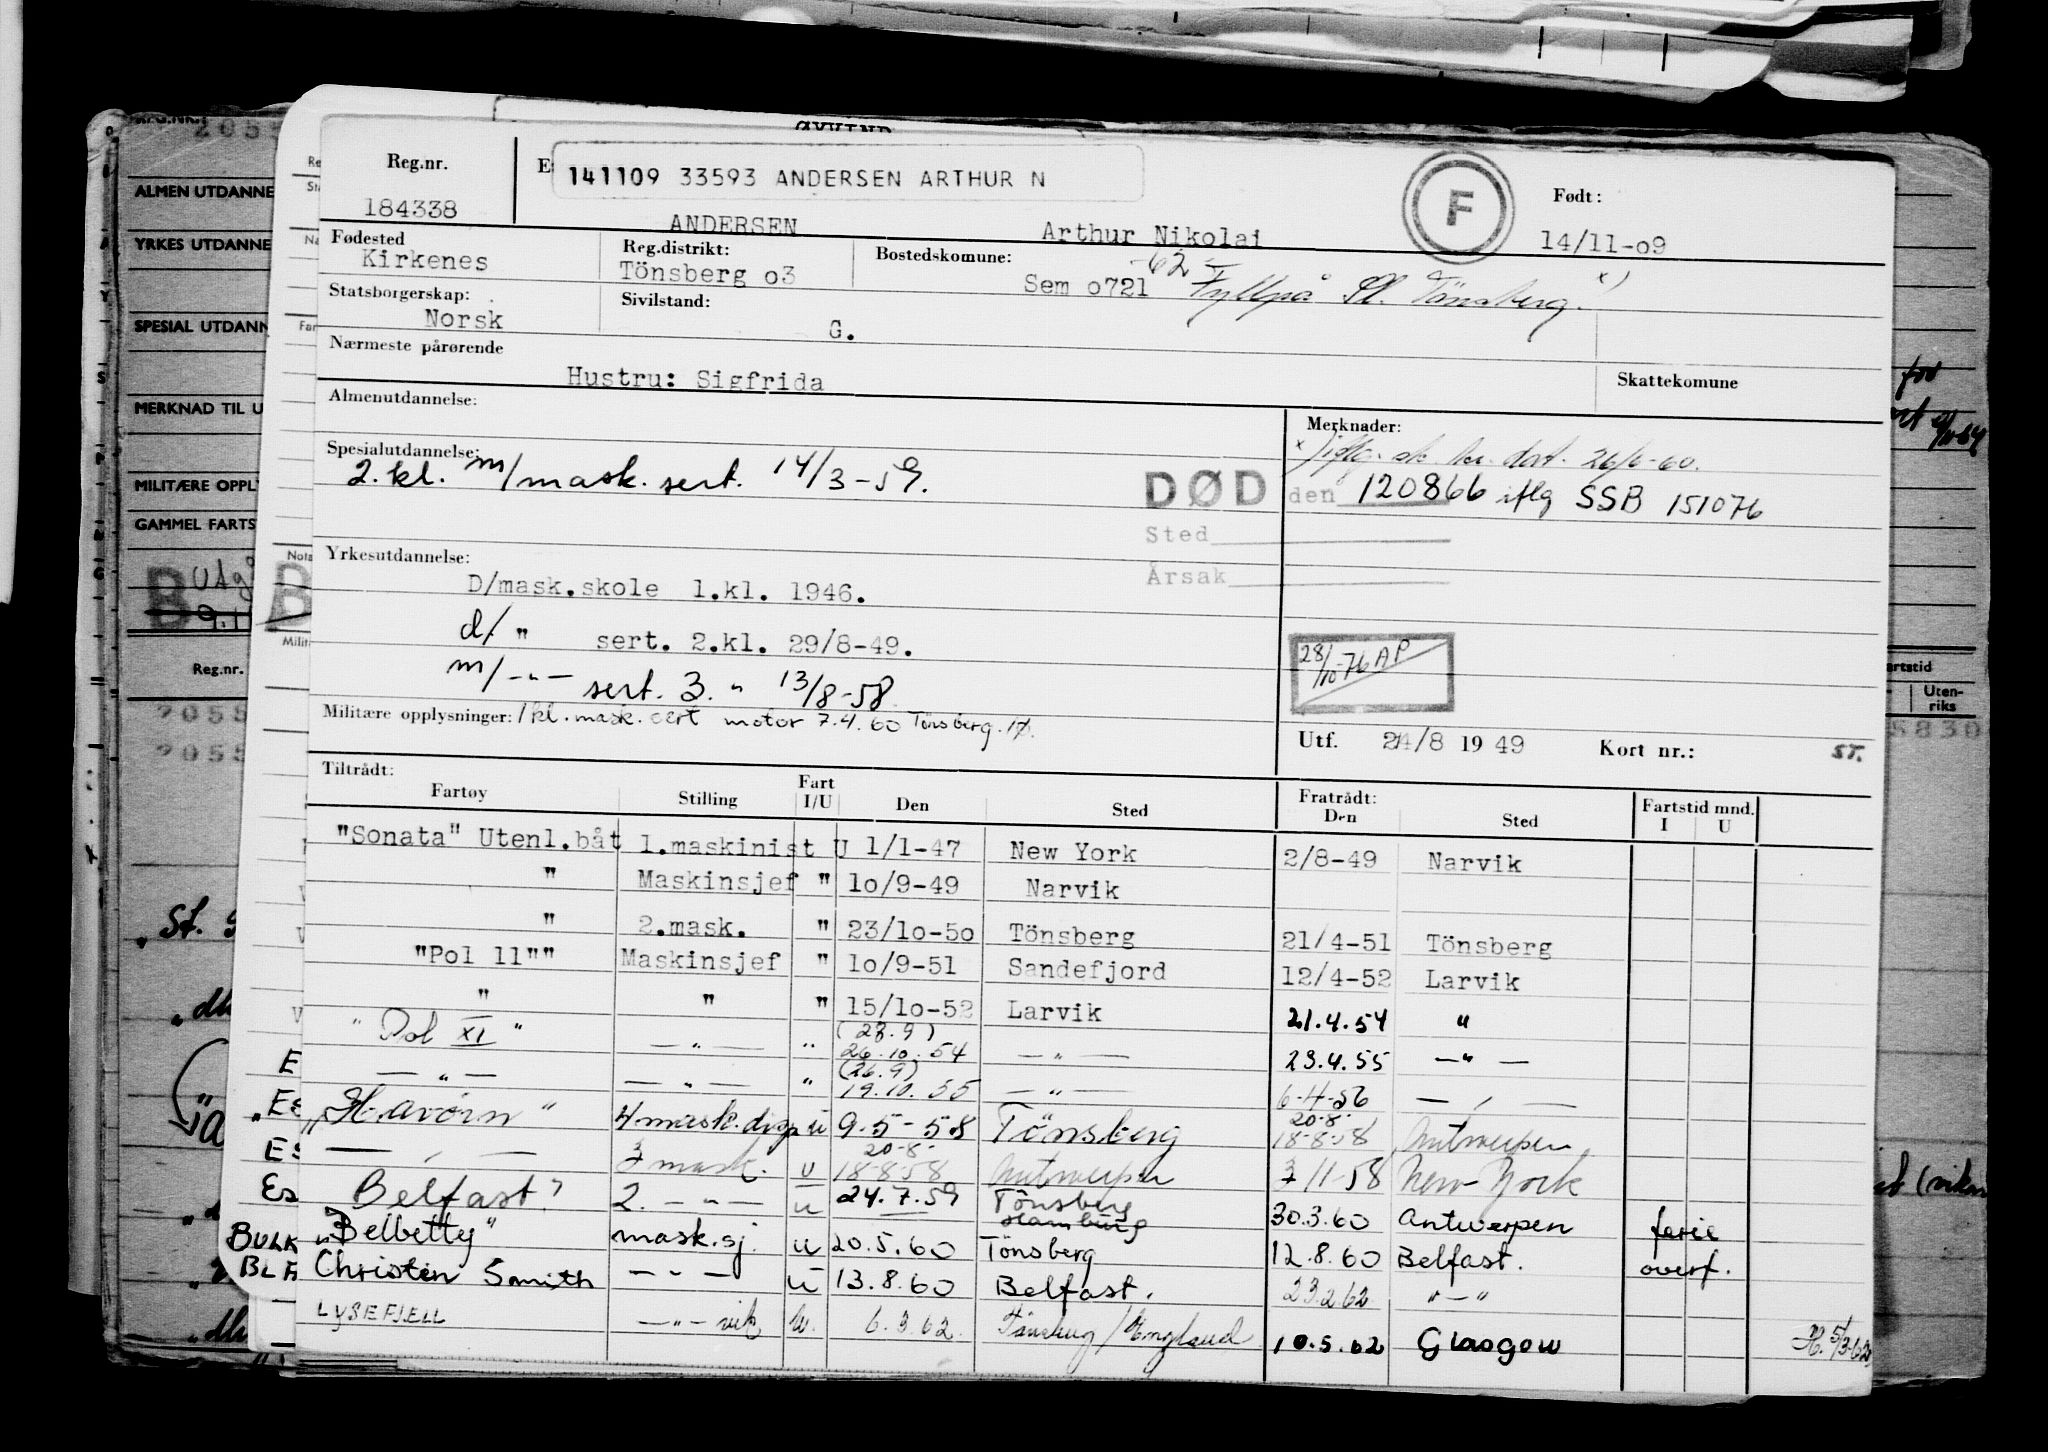 ØYVIND
Reg.nr.
141109 33593 ANDERSEN ARTHUR N
F
Født:
184338
ANDERSEN
Arthur Nikolai
14/11-o9
Fødested
Kirkenes
Reg.distrikt:
Tönsberg o3
Bostedskomune:
-62-
Sem o721 Fyllpå Tönsberg. x)
Statsborgerskap:
Norsk
Sivilstand:
G.
Nærmeste pårørende
Hustru: Sigfrida
Skattekomune
Almenutdannelse:
Merknader:
x) iflg. dat. 26/6-60.
Spesialutdannelse:
2.kl. m/mask.sert. 14/3-59.
DØD den 120866 iflg SSB 151076
Sted
Årsak
Yrkesutdannelse:
D/mask.skole 1.kl. 1946.
d/ " sert. 2.kl. 29/8-49.
m/ -"- sert. 3. " 13/8-58
28/10-76 AP
Militære opplysninger: 1kl.mask.sert motor 7.4.60 Tönsberg.
Utf. 24/8 1949 Kort nr.: ST.
Tiltrådt:
Fartøy Stilling Fart I/U Den Sted Fratrådt: Den Sted Fartstid mnd. I U
"Sonata" Utenl.båt 1.maskinist U 1/1-47 New York 2/8-49 Narvik
" Maskinsjef " 1o/9-49 Narvik
" 2.mask. " 23/1o-5o Tönsberg 21/4-51 Tönsberg
"Pol 11"" Maskinsjef " 1o/9-51 Sandefjord 12/4-52 Larvik
" " " 15/1o-52 Larvik 21.4.54 "
"Pol XI" -"- " (28.9) 26.10.54 -"- 23.4.55 -"-
-"- -"- " (26.9) 19.10.55 -"- 6-4-56 -"-
"Havörn" 4 mask.disp u 9-5-58 Tönsberg 20-8- 18-8-58 Antwerpen
-"- 3 mask. u 20-8- 18-8-58 Antwerpen 3 11-58 New York
Belfast? 2. -"- u 24.7.59 Tönsberg Hamburg 30.3.60 Antwerpen ferie
"Belbetty" mask.sj. u 20.5.60 Tönsberg 12.8.60 Belfast. overf.
Christen Smith -"- u 13.8.60 Belfast. 23.2.62 "-"
LYSEFJELL -"- vik u. 6.3.62. Tönsberg/England 10.5.62 Glasgow 5/3-62
ALMEN UTDANNE
YRKES UTDANNE
SPESIAL UTDANN
MERKNAD TIL U
MILITÆRE OPPLY
GAMMEL FARTS
B
Reg.nr.
2055
2055
Nota
Milit
BULK
artstid
Uten-
riks
5830